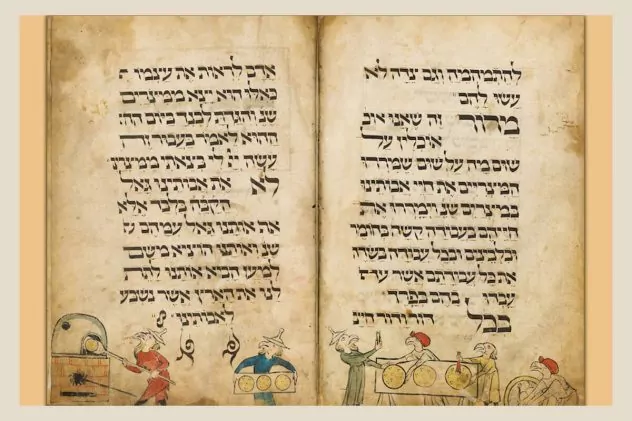 להתמהמה וגם צדה לא
עשו להם
מרור זה שאנו או
אוכלין על
שום מה על שום שמררו
המצריים את חיי אבותינו
במצרים שנ וימררו את
חייהם בעבודה קשה בחומר
ובלבנים ובכל עבודה בשדה
את כל עבודתם אשר
עבדו בהם בפרך
בכל דור ודור חייב
אדם לראות את עצמו
כאלו הוא יצא ממצרים
שנ והגדת לבנך ביום הה
ההוא לאמר בעבור זה
עשה יי לי בצאתי ממצרים
לא את אבותינו גאל
הקבה בלבד אלא
את אותנו גאל עמהם
שנ ואותנו הוציא משם
למען הביא אותנו לתת
לנו את הארץ אשר נשבע
לאבותינו